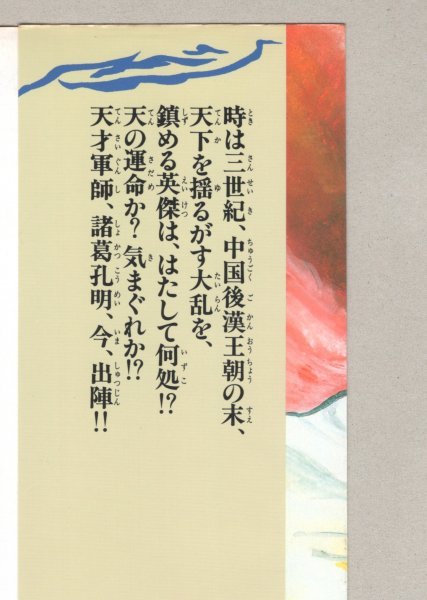 時は三世紀、中国後漢王朝の末、
天下を揺るがす大乱を、
鎮める英傑は、はたして何処!?
天の運命か? 気まぐれか!?
天才軍師、諸葛孔明、今、出陣!!